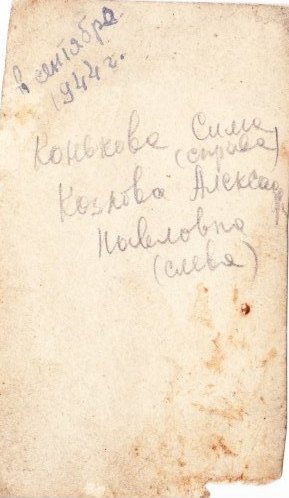 в сентябре
1944 г.
Конькова Сима
(справа)
Козлова Александра
Павловна
(слева)